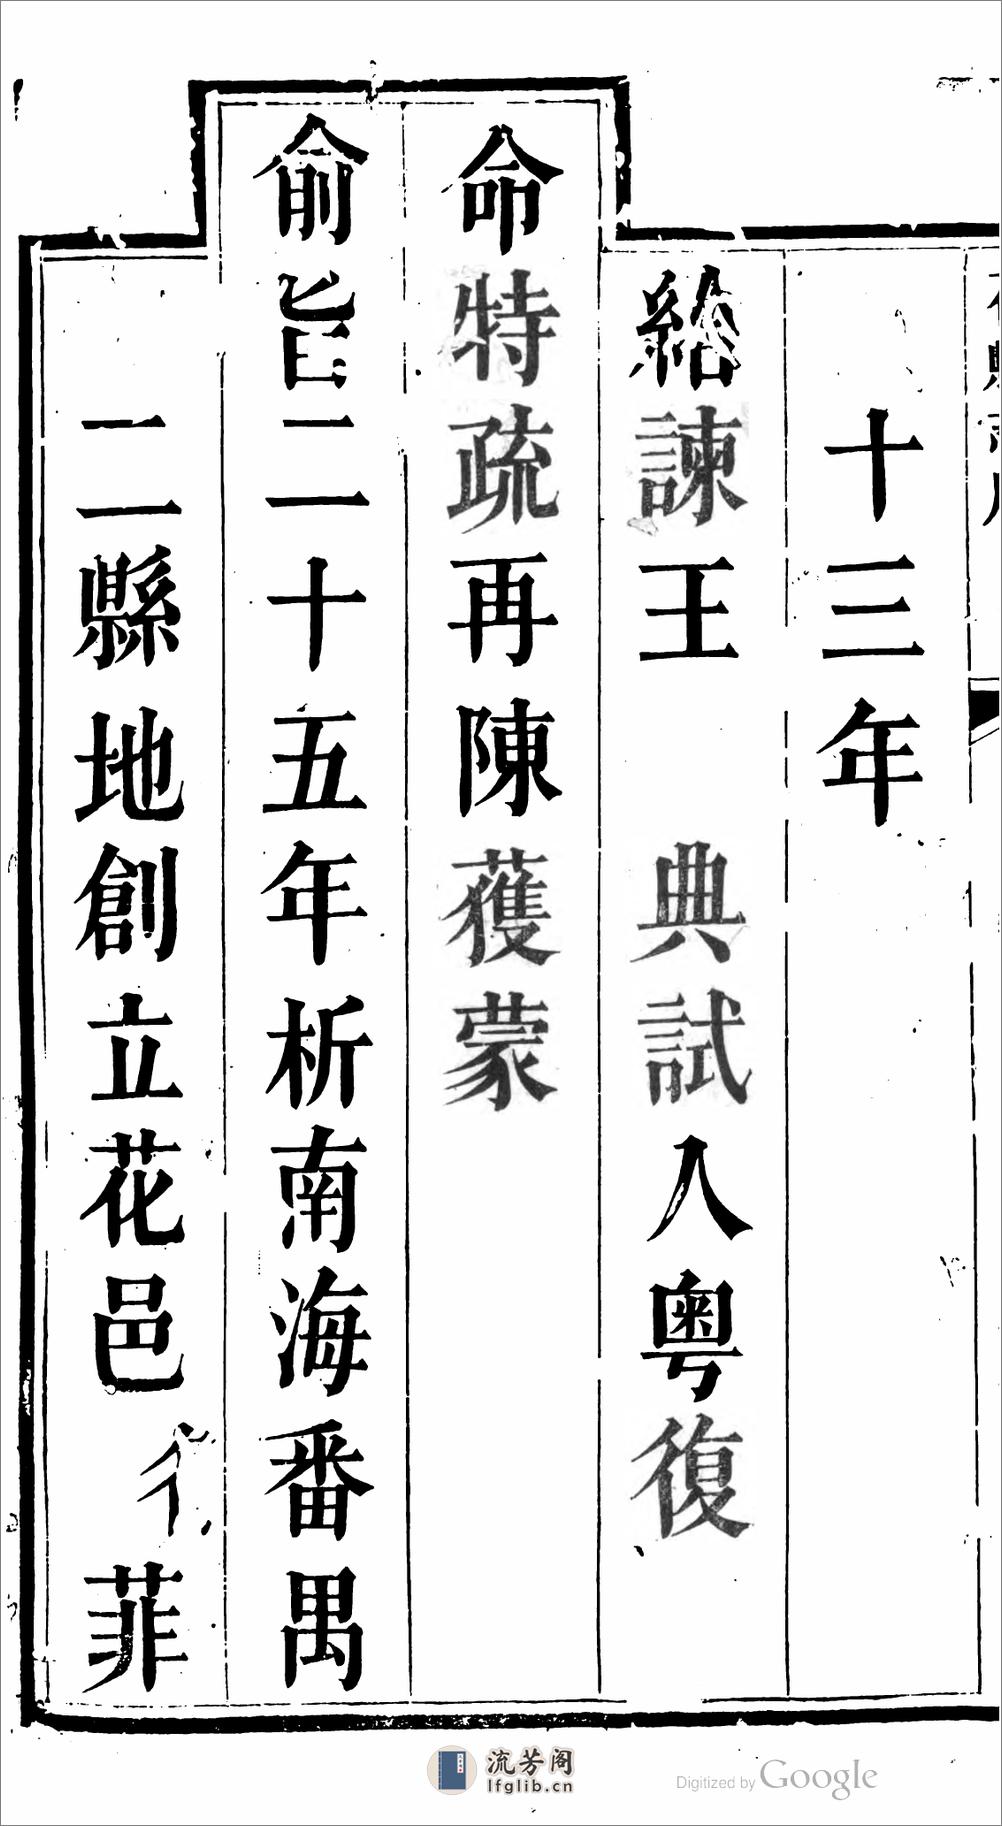 十三年
給諫王　典試入粵復
命特疏再陳獲蒙
俞旨二十五年析南海番禺
二縣地創立花邑菲
流芳阁
lfglib.cn
Digitized by Google